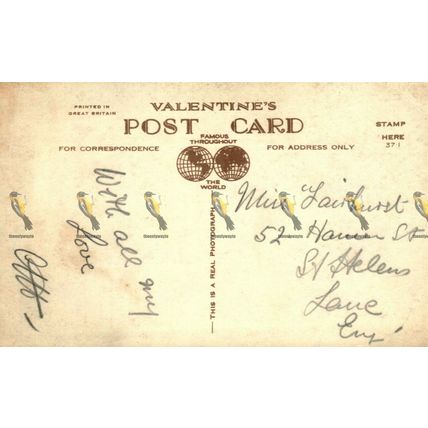 PRINTED IN
GREAT BRITAIN
VALENTINE'S
POST CARD
FAMOUS
THROUGHOUT
THE
WORLD
FOR CORRESPONDENCE
FOR ADDRESS ONLY
STAMP
HERE
371
THIS IS A REAL PHOTOGRAPH
With all my
love
Miss Fairhurst
52 St
St Helens
Lanc
Eng
theoldywayte